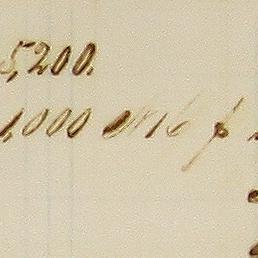 5,200.
1,000 @ 16 p